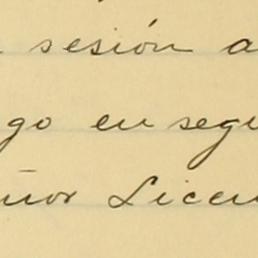 sesión a
go en segu
ñor Licen